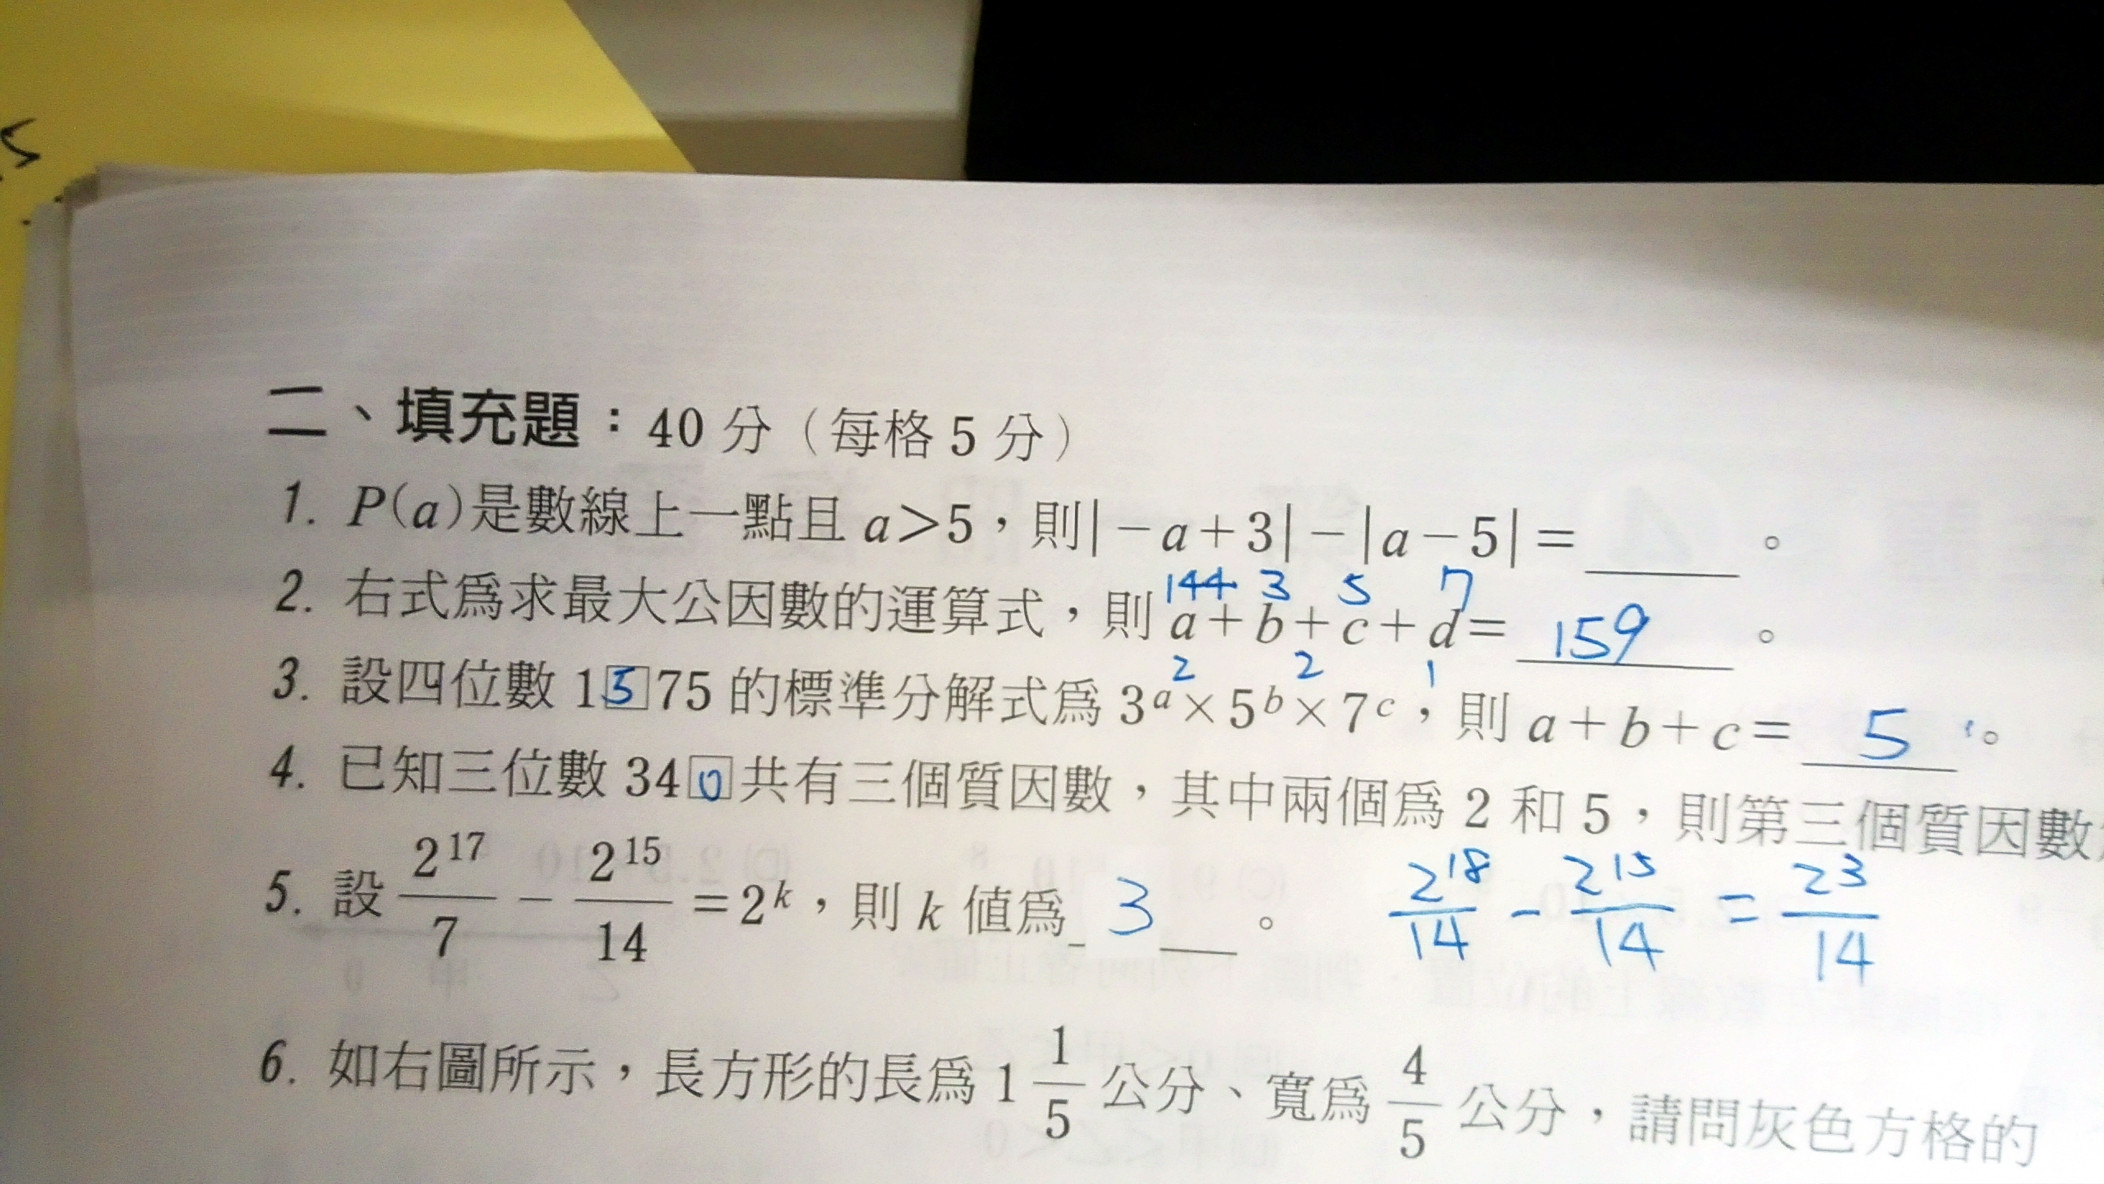 二、填充題：40 分（每格 5 分）
1. P(a)是數線上一點且 a＞5，則|－a＋3|－|a－5|＝______。
144 3 5 7
2. 右式為求最大公因數的運算式，則 a＋b＋c＋d＝ 159 。
2 2 1
3. 設四位數 1 5 75 的標準分解式為 3^a×5^b×7^c，則 a＋b＋c＝ 5 。
4. 已知三位數 34 0 共有三個質因數，其中兩個為 2 和 5，則第三個質因數
5. 設 2^17/7 － 2^15/14 ＝2^k，則 k 值為 3 。 2^18/14 － 2^15/14 ＝ 23/14
6. 如右圖所示，長方形的長為 1 1/5 公分、寬為 4/5 公分，請問灰色方格的